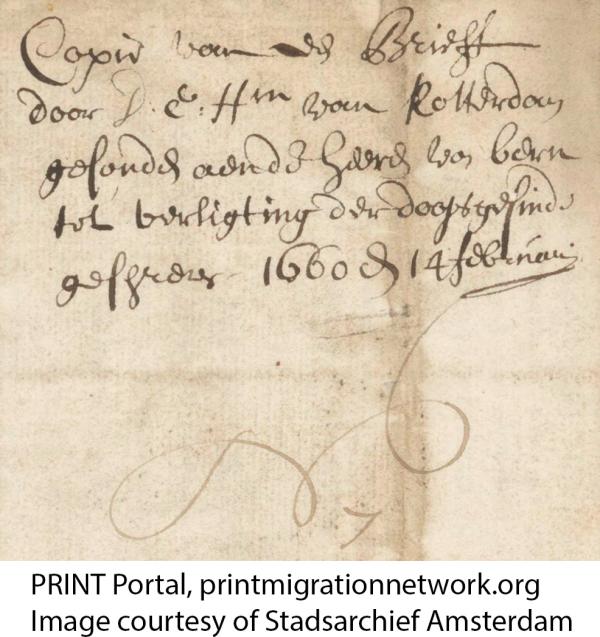 Copie van de Brieff
door D. E. Hrn van Rotterdam
gesonde aende heere van bern
tot verligting der doopsgesinde
geschreven 1660 de 14 februarij
7
PRINT Portal, printmigrationnetwork.org
Image courtesy of Stadsarchief Amsterdam